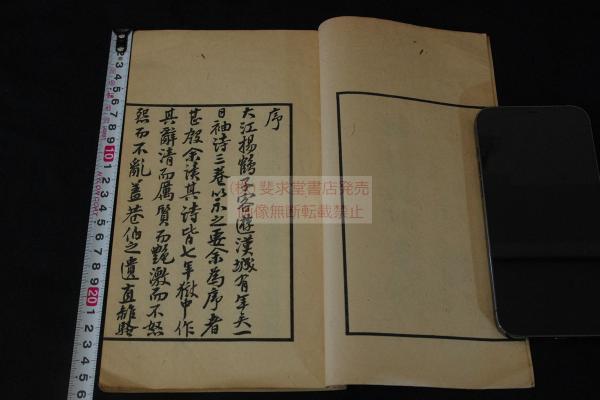 序
大江楊鶴子客遊漢城有年矣一
日袖詩三卷以示之要余為序者
甚殷余读其詩皆七年獄中作
其辭清而厲質而艷激而不怒
怨而不亂盖巷伯之遺直離
(株)斐求堂書店発売
画像無断転載禁止
2 3 4 5 6 7 8 9 10 1 2 3 4 5 6 7 8 9 20 1 2 3